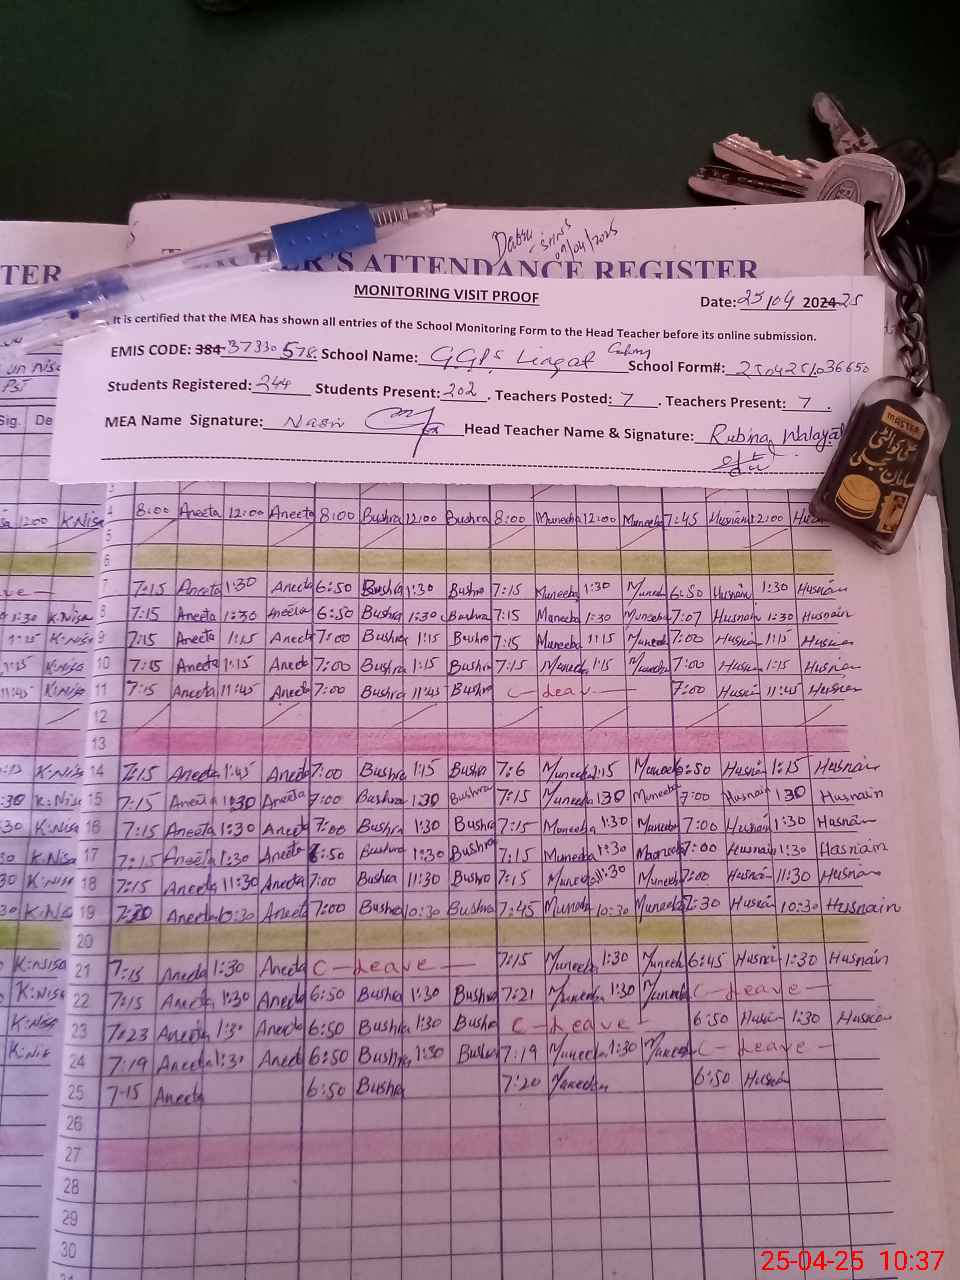 TER
TEACHER'S ATTENDANCE REGISTER
09/04/2025
MONITORING VISIT PROOF
Date: 25/04 2024 25
It is certified that the MEA has shown all entries of the School Monitoring Form to the Head Teacher before its online submission.
EMIS CODE: 384 37330578. School Name: GGPS Liaqat Colony School Form#: 250425
Students Registered: 244 Students Present: 202. Teachers Posted: 7. Teachers Present: 7.
MEA Name Signature: Nasir Head Teacher Name & Signature: Rubina Walayat
MASTER
Sig. De
12:00 K.Nisa 4 8:00 Aneeta 12:00 Aneeta 8:00 Bushra 12:00 Bushra 8:00 Muneeba 12:00 Muneeba 7:45
5
6
7 7:15 Aneeta 1:30 Aneeta 6:50 Bushra 1:30 Bushra 7:15 Muneeba 1:30 Muneeb 6:50 Husnain 1:30 Husnain
1:30 K.Nisa 8 7:15 Aneeta 1:30 Aneeta 6:50 Bushra 1:30 Bushra 7:15 Muneeba 1:30 Muneeba 7:07 Husnain 1:30 Husnain
1:15 K.Nisa 9 7:15 Aneeta 1:15 Aneeta 7:00 Bushra 1:15 Bushra 7:15 Muneeba 1:15 Muneeb 7:00 Husnain 1:15 Husnain
K.Nisa 10 7:15 Aneeta 1:15 Aneeta 7:00 Bushra 1:15 Bushra 7:15 Muneeb 1:15 Muneeb 7:00 Husnain 1:15 Husnain
11:45 K.Nisa 11 7:15 Aneeta 11:45 Aneeta 7:00 Bushra 11:45 Bushra C-Leav 7:00 Husnain 11:45 Husnain
12
13
K:Nisa 14 7:15 Aneeta 1:45 Aneeta 7:00 Bushra 1:15 Bushra 7:6 Muneeb 1:15 Muneeb 6:50 Husnain 1:15 Husnain
:30 K:Nise 15 7:15 Aneeta 1:30 Aneeta 7:00 Bushra 1:30 Bushra 7:15 Muneeba 1:30 Muneeba 7:00 Husnain 1:30 Husnain
30 K:Nisa 16 7:15 Aneeta 1:30 Aneeta 7:00 Bushra 1:30 Bushra 7:15 Muneeba 1:30 Muneeb 7:00 Husnain 1:30 Husnain
30 K:Nisa 17 7:15 Aneeta 1:30 Aneeta 6:50 Bushra 1:30 Bushra 7:15 Muneeba 1:30 Muneeb 7:00 Husnain 1:30 Hasnain
30 K:Nisa 18 7:15 Aneeta 11:30 Aneeta 7:00 Bushra 11:30 Bushra 7:15 Muneeb 11:30 Muneeb 7:00 Husnain 11:30 Husnain
30 K:Nisa 19 7:20 Aneeta 10:30 Aneeta 7:00 Bushra 10:30 Bushra 7:45 Muneeb 10:30 Muneeb 7:30 Husnain 10:30 Husnain
20
K:nisa 21 7:15 Aneeta 1:30 Aneeta C-Leave 7:15 Muneeb 1:30 Muneeb 6:45 Husnain 1:30 Husnain
K:Nisa 22 7:15 Aneeta 1:30 Aneeta 6:50 Bushra 1:30 Bushra 7:21 Muneeba 1:30 Muneeb C-Leave
K:Nisa 23 7:23 Aneeta 1:30 Aneeta 6:50 Bushra 1:30 Bushra C-Leave 6:50 Husnain 1:30 Husnain
K:Nisa 24 7:19 Aneeta 1:30 Aneeta 6:50 Bushra 1:30 Bushra 7:19 Muneeba 1:30 Muneeb C-Leave
25 7-15 Aneeta 6:50 Bushra 7:20 Muneeba 6:50 Husnain
26
27
28
29
30
25-04-25 10:37